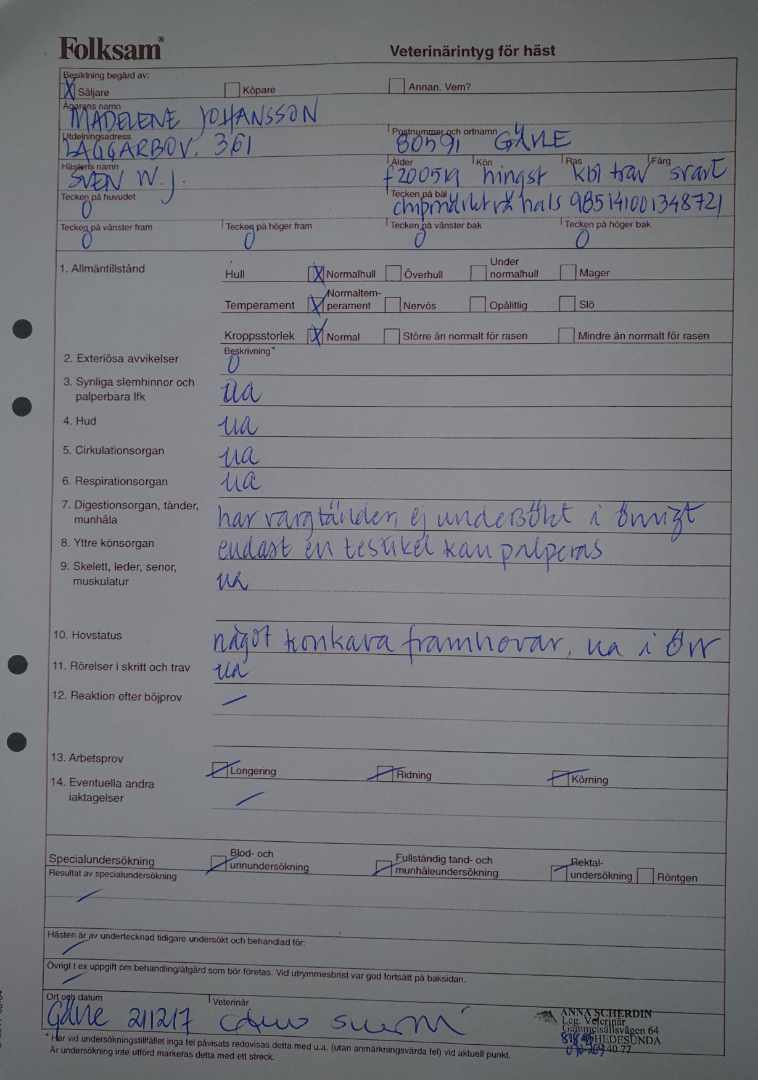 Folksam®
Veterinärintyg för häst
Besiktning begärd av:
X Säljare Köpare Annan. Vem?
Ägarens namn
MADELENE JOHANSSON
Utdelningsadress Postnummer och ortnamn
LAGGARBOV. 361 80591 GÄVLE
Hästens namn Ålder Kön Ras Färg
SVEN W.J. f200519 hingst kbl trav svart
Tecken på huvudet Tecken på bål
0 chipmärkt vä hals 985141001348721
Tecken på vänster fram Tecken på höger fram Tecken på vänster bak Tecken på höger bak
0 0 0 0
1. Allmäntillstånd Hull X Normalhull Överhull Under normalhull Mager
Temperament X Normaltemperament Nervös Opålitlig Slö
Kroppsstorlek X Normal Större än normalt för rasen Mindre än normalt för rasen
Beskrivning*
2. Exteriösa avvikelser 0
3. Synliga slemhinnor och
palperbara lfk ua
4. Hud ua
5. Cirkulationsorgan ua
6. Respirationsorgan ua
7. Digestionsorgan, tänder,
munhåla har vargtänder, ej undersökt i övrigt
8. Yttre könsorgan endast en testikel kan palperas
9. Skelett, leder, senor,
muskulatur ua
10. Hovstatus något konkava framhovar, ua i övr
11. Rörelser i skritt och trav ua
12. Reaktion efter böjprov –
13. Arbetsprov Longering Ridning Körning
14. Eventuella andra
iaktagelser –
Specialundersökning Blod- och urinundersökning Fullständig tand- och munhåleundersökning Rektalundersökning Röntgen
Resultat av specialundersökning
–
Hästen är av undertecknad tidigare undersökt och behandlad för:
–
Övrigt t ex uppgift om behandling/åtgärd som bör företas. Vid utrymmesbrist var god fortsätt på baksidan.
–
Ort och datum Veterinär
Gävle 211217
ANNA SCHERDIN
Leg. Veterinär
Gammelsällsvägen 64
HEDESUNDA
* Har vid undersökningstillfället inga fel påvisats redovisas detta med u.a. (utan anmärkningsvärda fel) vid aktuell punkt.
Är undersökning inte utförd markeras detta med ett streck.